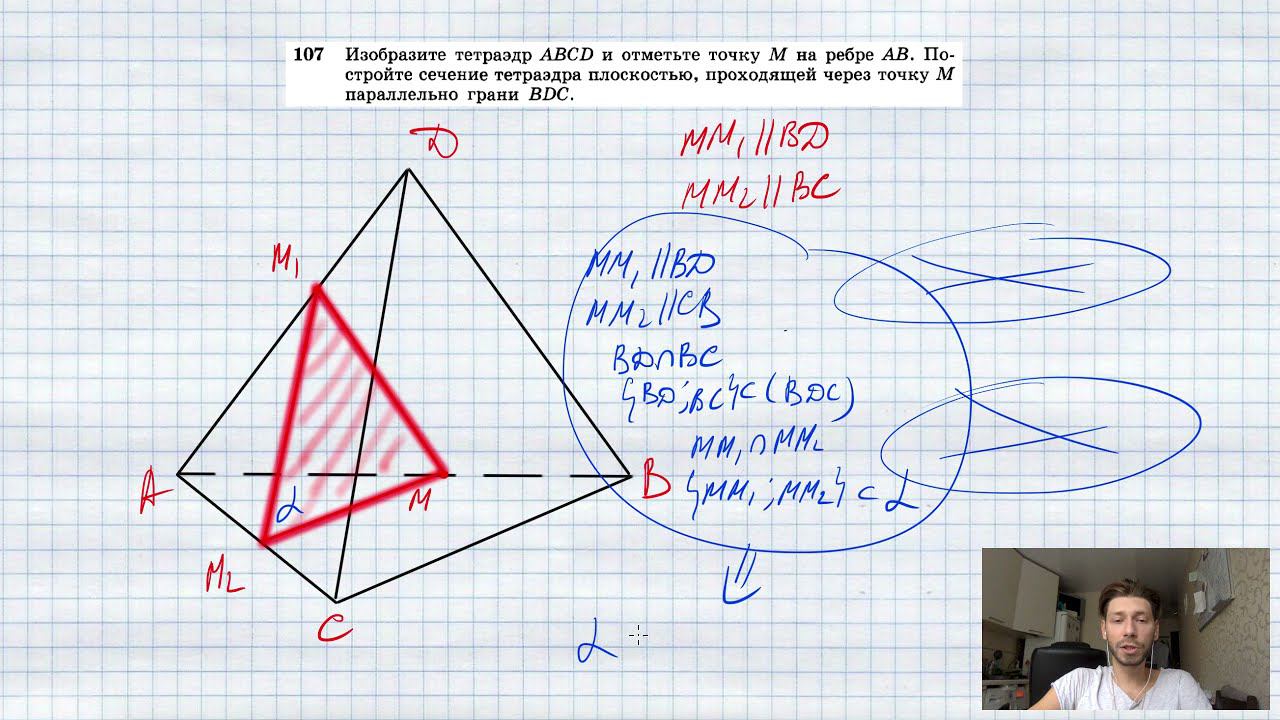 107 Изобразите тетраэдр ABCD и отметьте точку M на ребре AB. По-
стройте сечение тетраэдра плоскостью, проходящей через точку M
параллельно грани BDC.
D
MM₁ || BD
MM₂ || BC
M₁
MM₁ || BD
MM₂ || CB
BD ∩ BC
{BD; BC} ⊂ (BDC)
MM₁ ∩ MM₂
{MM₁; MM₂} ⊂ α
A
B
M
α
M₂
C
⇓
α